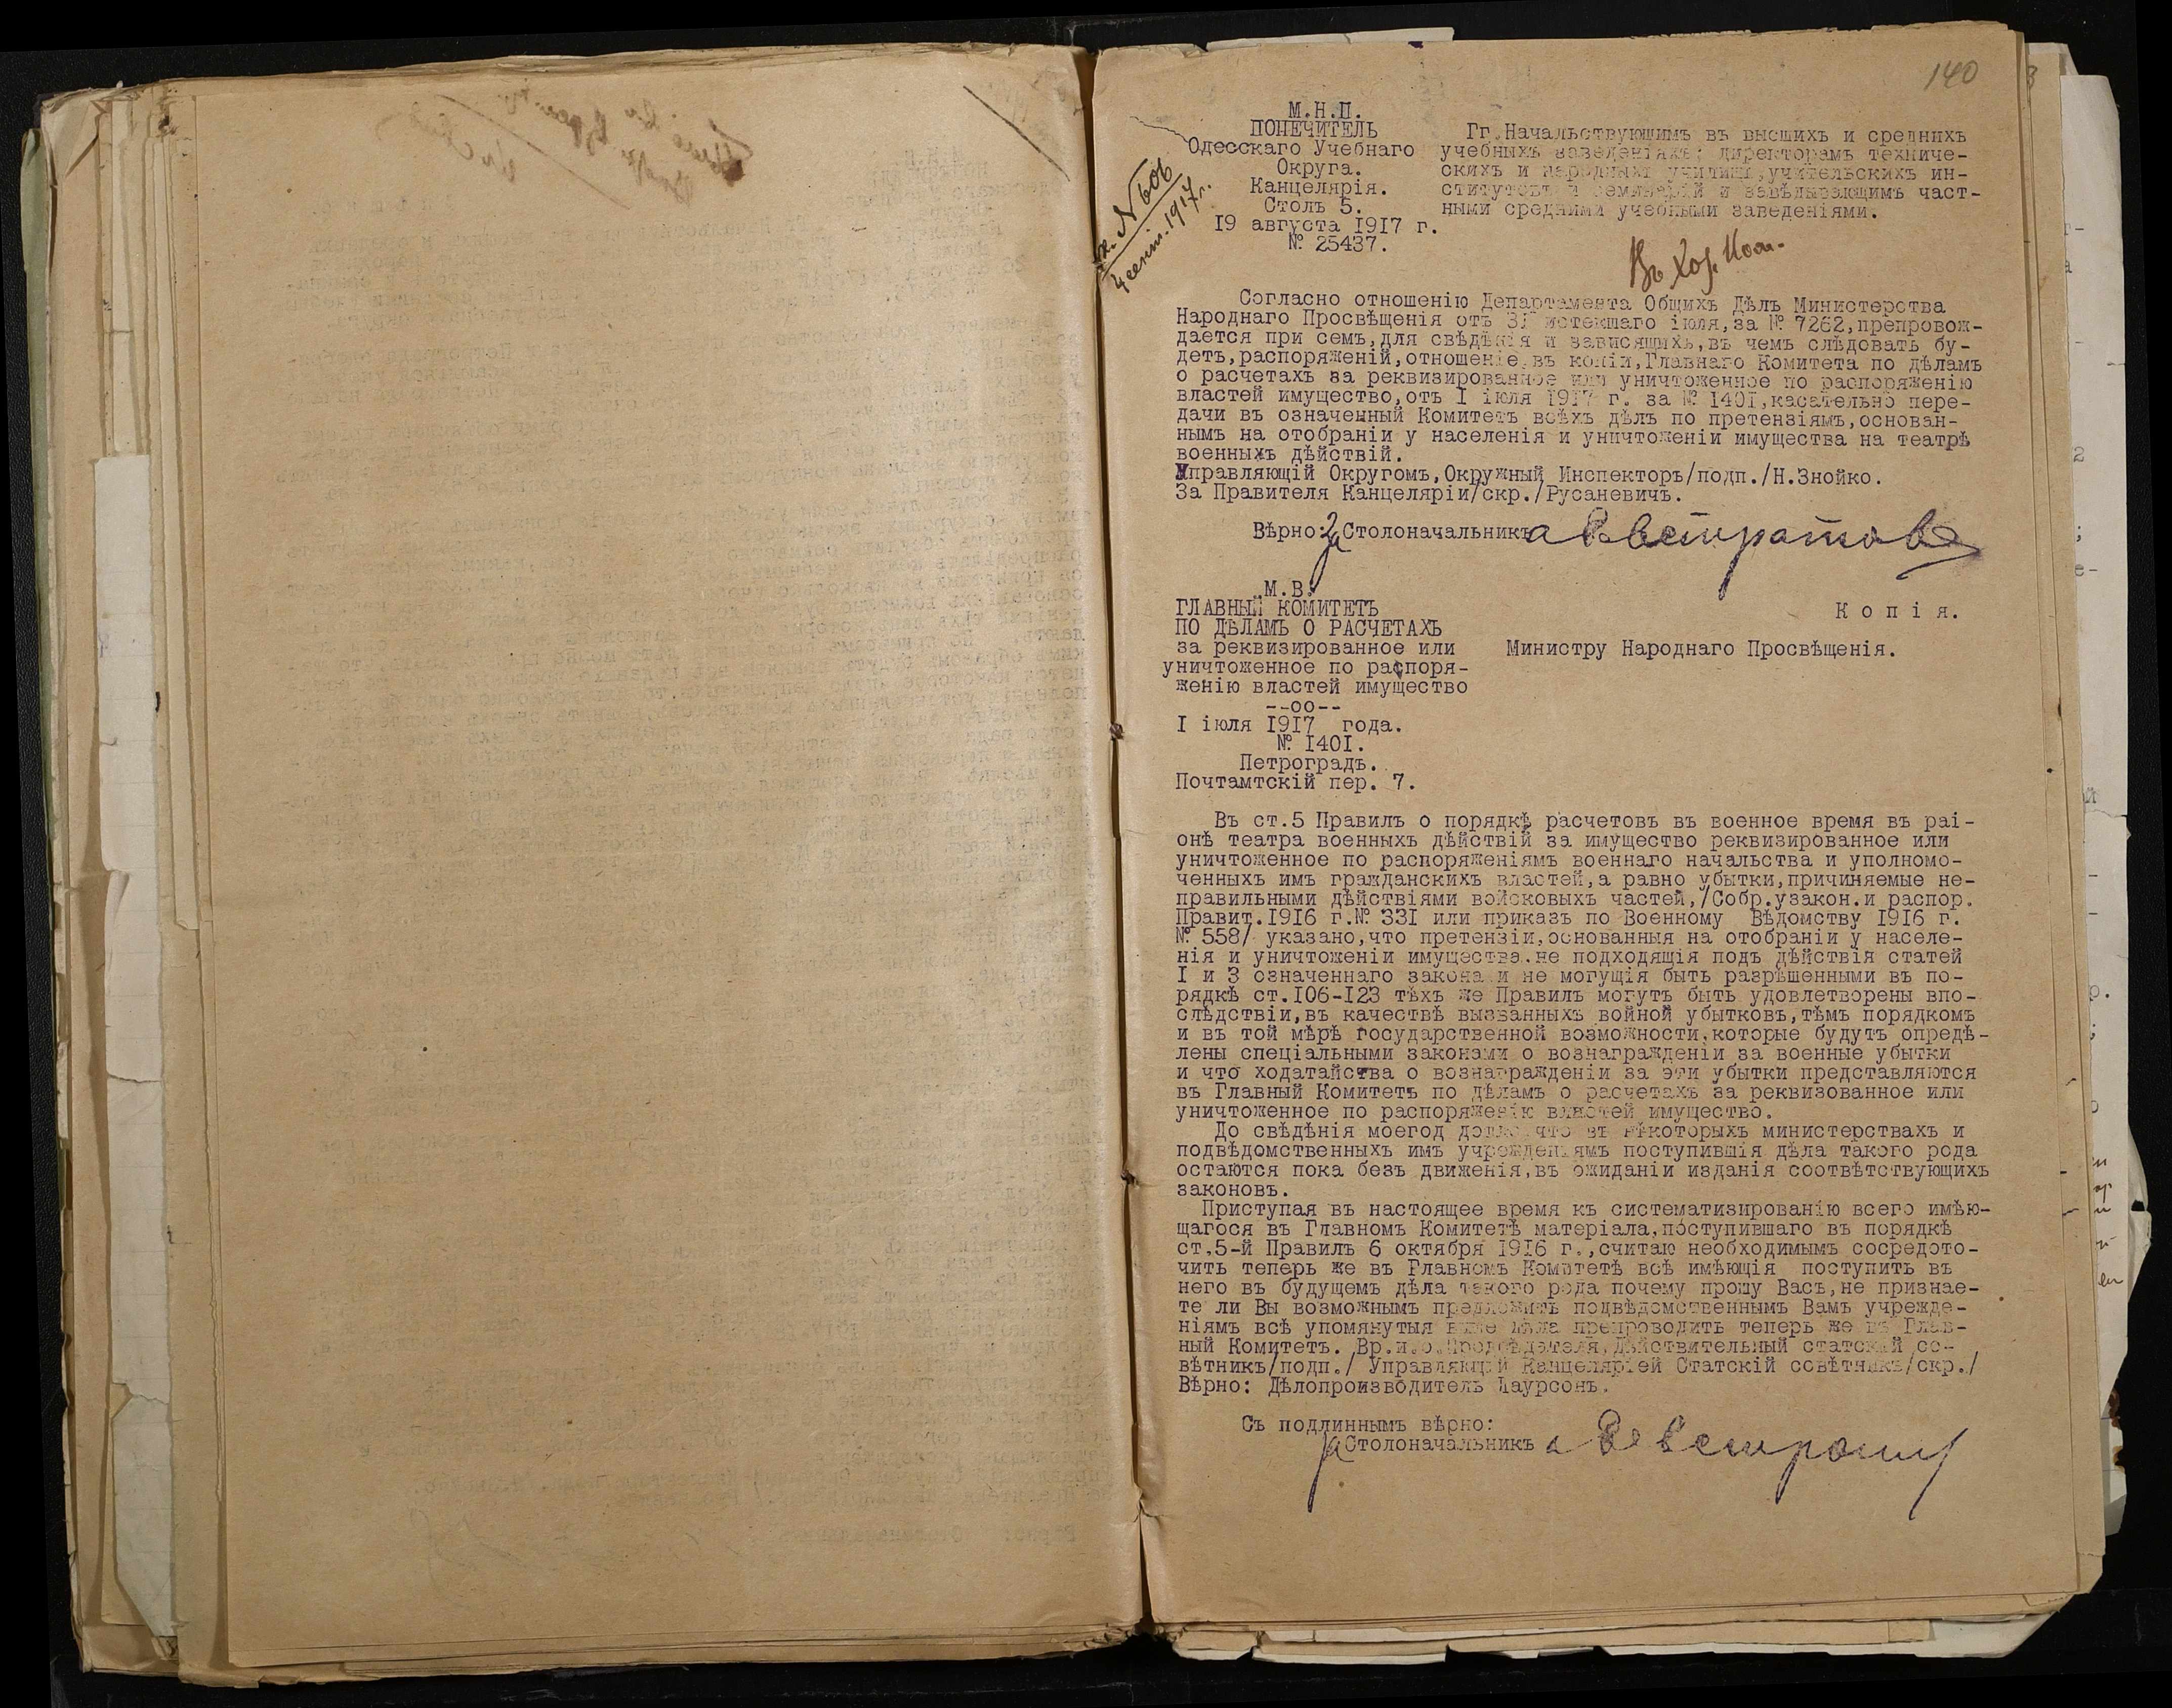 140
М.Н.П.
ПОПЕЧИТЕЛЬ
Одесскаго Учебнаго
Округа.
Канцелярія.
Столъ 5.
19 августа 1917 г.
№ 25437.
№ 606
4 сент. 1917 г.
Гг.Начальствующимъ въ высшихъ и среднихъ
учебныхъ заведеніяхъ; директорамъ техниче-
скихъ и народныхъ училищъ,учительскихъ ин-
ститутовъ и семинарій и завѣдывающимъ част-
ными средними учебными заведеніями.
Въ Хоз. Ком.
Согласно отношенію Департамента Общихъ Дѣлъ Министерства
Народнаго Просвѣщенія отъ 31 истекшаго іюля,за № 7262,препровож-
дается при семъ,для свѣдѣнія и зависящихъ,въ чемъ слѣдовать бу-
детъ,распоряженій,отношеніе,въ копіи,Главнаго Комитета по дѣламъ
о расчетахъ за реквизированное или уничтоженное по распоряженію
властей имущество,отъ I іюля 1917 г. за № I40I,касательно пере-
дачи въ означенный Комитетъ всѣхъ дѣлъ по претензіямъ,основан-
нымъ на отобраніи у населенія и уничтоженіи имущества на театрѣ
военныхъ дѣйствій.
Управляющій Округомъ,Окружный Инспекторъ/подп./Н.Знойко.
За Правителя Канцеляріи/скр./Русаневичъ.
Вѣрно: За Столоначальника Евстратовъ
М.В.
ГЛАВНЫЙ КОМИТЕТЪ
ПО ДѢЛАМЪ О РАСЧЕТАХЪ
за реквизированное или
уничтоженное по распоря-
женію властей имущество
--оо--
I іюля 1917 года.
№ I40I.
Петроградъ.
Почтамтскій пер. 7.
Копія.
Министру Народнаго Просвѣщенія.
Въ ст.5 Правилъ о порядкѣ расчетовъ въ военное время въ раі-
онѣ театра военныхъ дѣйствій за имущество реквизированное или
уничтоженное по распоряженіямъ военнаго начальства и уполномо-
ченныхъ имъ гражданскихъ властей,а равно убытки,причиняемые не-
правильными дѣйствіями войсковыхъ частей,/Собр.узакон.и распор.
Правит.1916 г.№ 331 или приказъ по Военному Вѣдомству 1916 г.
№ 558/ указано,что претензіи,основанныя на отобраніи у населе-
нія и уничтоженіи имущества,не подходящія подъ дѣйствія статей
I и 3 означеннаго закона и не могущія быть разрѣшенными въ по-
рядкѣ ст.I06-I23 тѣхъ же Правилъ могутъ быть удовлетворены впо-
слѣдствіи,въ качествѣ вызванныхъ войной убытковъ,тѣмъ порядкомъ
и въ той мѣрѣ государственной возможности,которые будутъ опредѣ-
лены спеціальными законами о вознагражденіи за военные убытки
и что ходатайства о вознагражденіи за эти убытки представляются
въ Главный Комитетъ по дѣламъ о расчетахъ за реквизованное или
уничтоженное по распоряженію властей имущество.
До свѣдѣнія моегод дошло,что въ нѣкоторыхъ министерствахъ и
подвѣдомственныхъ имъ учрежденіямъ поступившія дѣла такого рода
остаются пока безъ движенія,въ ожиданіи изданія соотвѣтствующихъ
законовъ.
Приступая въ настоящее время къ систематизированію всего имѣю-
щагося въ Главномъ Комитетѣ матеріала,поступившаго въ порядкѣ
ст.5-й Правилъ 6 октября 1916 г.,считаю необходимымъ сосредото-
чить теперь же въ Главномъ Комитетѣ всѣ имѣющія поступить въ
него въ будущемъ дѣла такого рода почему прошу Васъ,не признае-
те ли Вы возможнымъ предложить подвѣдомственнымъ Вамъ учрежде-
ніямъ всѣ упомянутыя выше дѣла препроводить теперь же въ Глав-
ный Комитетъ. Вр.и.о.Предсѣдателя,Дѣйствительный статскій со-
вѣтникъ/подп./ Управляющій Канцеляріей Статскій совѣтникъ/скр./
Вѣрно: Дѣлопроизводитель Лаурсонъ.
Съ подлиннымъ вѣрно:
За Столоначальника Евстратовъ